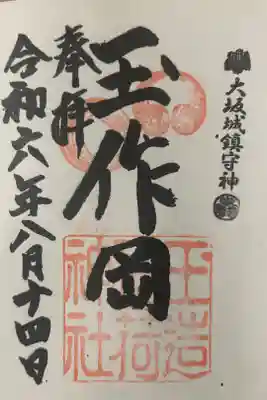 大坂城鎮守神
奉拝
玉作岡
玉造
稲荷
神社
令和六年八月十四日